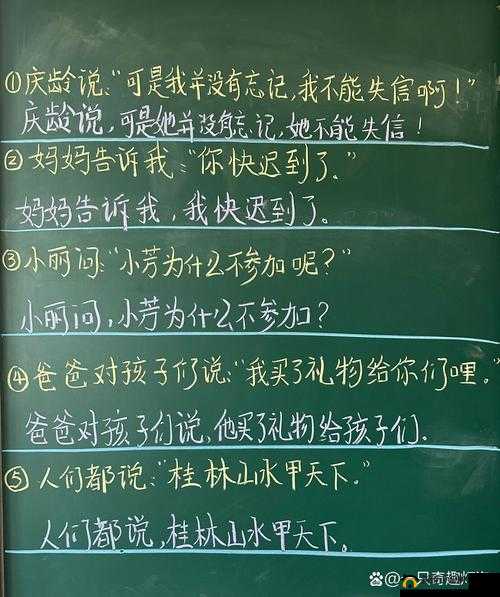 ①庆龄说:“可是我并没有忘记,我不能失信啊!”
庆龄说,可是她并没有忘记,她不能失信!
②妈妈告诉我:“你快迟到了。”
妈妈告诉我,我快迟到了。
③小丽问:“小芳为什么不参加呢?”
小丽问,小芳为什么不参加?
④爸爸对孩子们说:“我买了礼物给你们哩。”
爸爸对孩子们说,他买了礼物给孩子们.
⑤人们都说:“桂林山水甲天下。”
人们都说,桂林山水甲天下。
Bai 百科 @一只奇趣